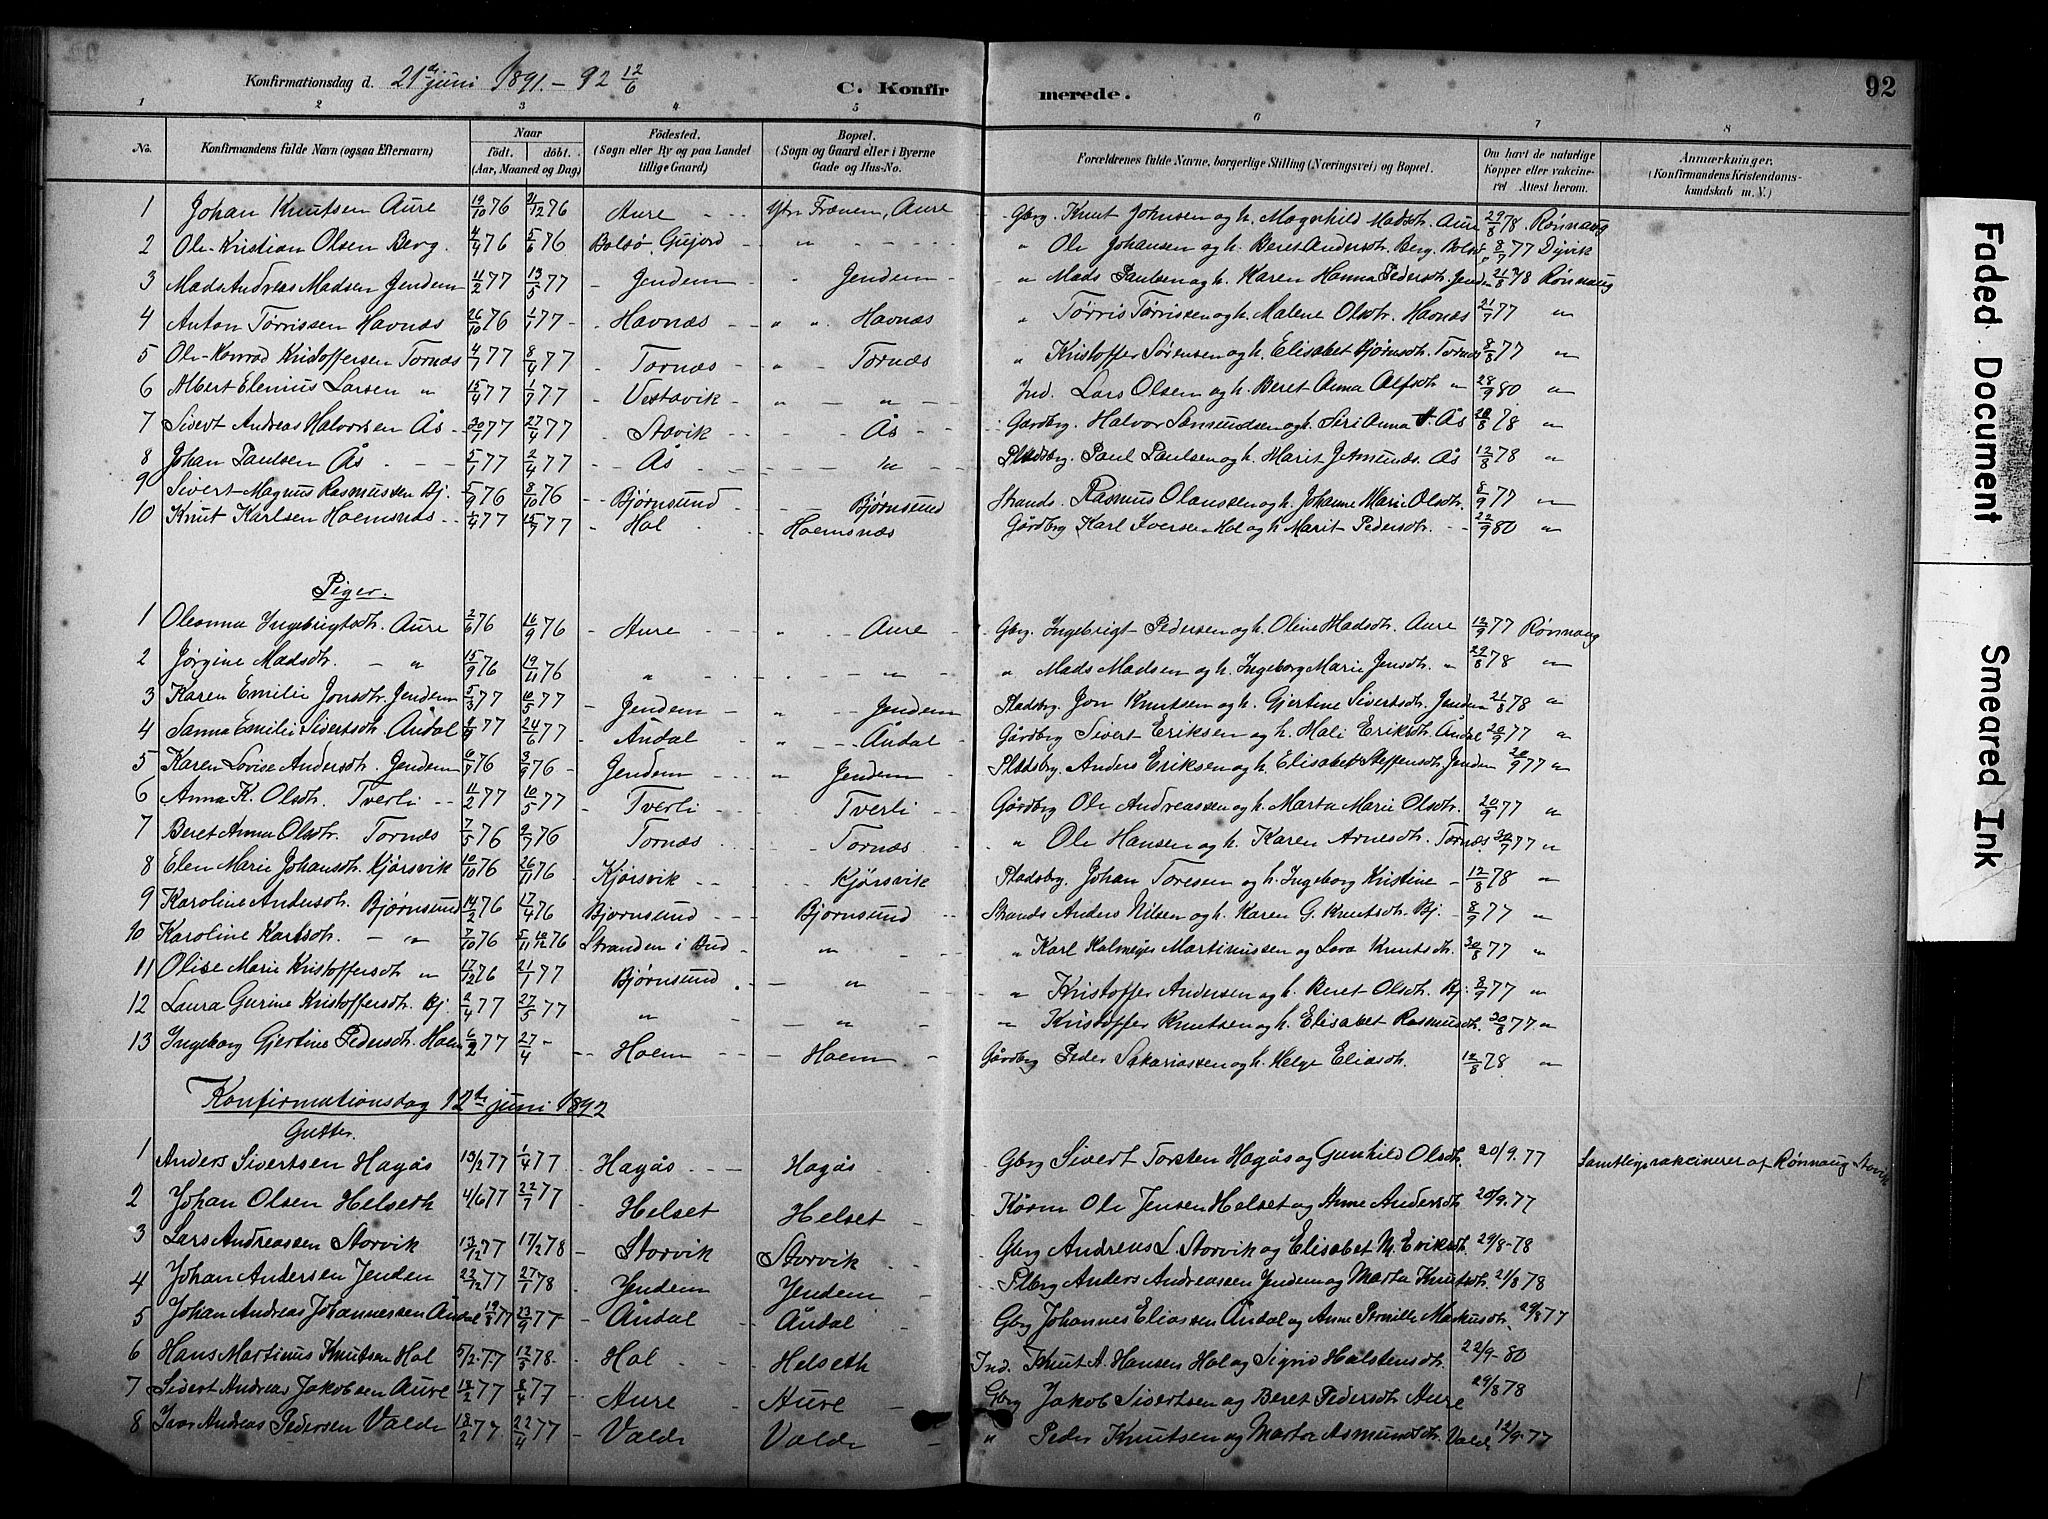 Konfirmationsdag d. 21de juni 1891. - 92 12/6
C. Konfirmerede.
92
1 2 3 4 5 6 7 8
No. Konfirmandens fulde Navn (ogsaa Efternavn) Naar født. døbt. (Aar, Maaned og Dag) Fødested. (Sogn eller By og paa Landet tillige Gaard) Bopæl. (Sogn og Gaard eller i Byerne Gade og Hus-No. Forældrenes fulde Navne, borgerlige Stilling (Næringsvei) og Bopæl. Om havt de naturlige Kopper eller vakcineret Attest herom. Anmærkninger. (Konfirmandens Kristendomskundskab m. V.)
1 Johan Knutsen Aure 19/10 76 76 Aure Ytr. Frænen, Aure Gbrg. Knut Johnsen og h. Magnhild Madsdt. Aure 29/8 78 Rønnaug
2 Ole Kristian Olsen Berg 4/4 76 5/6 76 Bolsø, Gujord " Ole Johansen og h. Beret Andersdt. Berg. Bolsø 8/7 77 Dyvik
3 Mads Andreas Madsen Jendem 11/2 77 13/5 77 Jendem " Jendem " Mads Paulsen og h. Karen Hanna Pedersdt. Jendem 21/8 78 Rønnaug
4 Anton Tørrissen Havnæs 26/10 76 1/1 77 Havnæs " " Havnæs " Tørris Tørrissen og h. Malene Olsdt. Havnæs 21/7 77 "
5 Ole Konrad Kristoffersen Tornæs 77 8/4 77 Tornæs " Tornæs " Kristoffer Sørensen og h. Elisabet Bjørnsdt. Tornæs 8/8 77 "
6 Albert Elenius Larsen " 15/4 77 77 Vestavik " " Ind. Lars Olsen og h. Beret Anna Alfsdt. " 28/9 80 "
7 Sivert Andreas Halvorsen Ås 77 27/4 77 Stavik " Ås Gardbrg. Halvor Sæmundsen og h. Siri Anna Ås 20/8 78 "
8 Johan Paulsen Ås 5/1 77 2/4 77 Ås " Pladsbrg. Paul Paulsen og h. Marit J. Amunds. Ås 12/8 78 "
9 Sivert Magnus Rasmussen Bj. 5/9 76 8/10 76 Bjørnsund Bjørnsund Strands. Rasmus Olaussen og h. Johanne Marie Olsdt. 8/9 77 "
10 Knut Karlsen Hoemsnæs 77 77 Hol Hoemsnæs Gårdbrg Karl Iversen Hol og h. Marit Pedersdt. 22/9 80 "
Piger.
1 Oleanna Ingebrigtsdt. Aure 2/6 76 10/9 76 Aure " Aure Gbrg. Ingebrigt Pedersen og h. Oline Madsdt. Aure 12/9 77 Rønnaug
2 Jørgine Madsdt. " 15/9 76 19/11 76 " " " Mads Madsen og h. Ingeborg Marie Jensdt. " 29/8 78 "
3 Karen Emilie Jonsdt. Jendem 5/3 77 10/5 77 Jendem " Jendem Pladsbrg. Jon Knutsen og h. Gjertine Sivertsdt. Jendem 21/8 78 "
4 Sanna Emilie Sivertsdt Åndal 77 24/6 77 Åndal " Åndal Gårdbrg Sivert Eriksen og h. Mali Eriksdt. Åndal 20/9 77 "
5 Karen Lovise Andersdt. Jendem 76 3/9 76 Jendem " Jendem Pladsbrg. Anders Eriksen og h. Elisabet Steffensdt. Jendem 20/9 77 "
6 Anna K. Olsdt. Tverli 11/2 77 10/5 77 Tverli Tverli Gårdbrg Ole Andreassen og h. Marta Marie Olsdt. 20/9 77 "
7 Beret Anna Olsdt. Tornæs 7/5 76 2/7 76 Tornæs Tornæs " Ole Hansen og h. Karen Arnesdt. Tornæs 77 "
8 Elen Marie Johansdt. Kjørsvik 10/10 76 26/11 76 Kjørsvik Kjørsvik Pladsbrg. Johan Toresen og h. Ingeborg Kristine 12/8 78 "
9 Karoline Andersdt. Bjørnsund 14/2 76 17/4 76 Bjørnsund Bjørnsund Strands Anders Nilsen og h. Karen G. Knutsdt. Bj. 8/9 77 "
10 Karoline Karlsdt. " 7/10 76 5/11 10/12 76 Stranden i Bud " " Karl Kalmeyer Martinussen og Lova Knutsdt. 30/8 77 "
11 Olise Marie Kristoffersdt. " 17/12 76 21/1 77 Bjørnsund " " Kristoffer Andersen og h. Beret Olsdt. Bj. 8/9 77 "
12 Laura Gurine Kristoffersdt. Bj. 2/4 77 27/5 77 " " " Kristoffer Knutsen og h. Elisabet Rasmusdt. 30/8 77 "
13 Ingeborg Gjertine Pedersdt. Hoem 6/2 77 27/4 - Hoem Hoem Gårdbrg Peder Sakariassen og h. Helge Eliasdt. 12/8 78 "
Konfirmationsdag 12te juni 1892
Gutter.
1 Anders Sivertsen Hagås 13/2 77 1/4 77 Hagås Hagås Gbrg Sivert Torsten Hagås og Gunhild Olsdt. 20/9. 77 Samtlige vakcinerer af Rønnaug Stavik
2 Johan Olsen Helseth 4/6 77 22/7 77 Helset Helset Ole Jensen Helset og Anne Andersdt 20/9. 77
3 Lars Andreassen Storvik 13/12 77 17/2 78 Storvik Storvik Gbrg Andreas L. Storvik og Elisabet M. Eriksdt. 29/8-78
4 Johan Andersen Jenden 22/12 77 27/1 78 Jendem Jendem Plbrg Anders Andreassen Jendem og Marta Knutsdt. 21/8 78
5 Johan Andreas Johannessen Åndal 19/8 77 23/9 77 Åndal Åndal Gbrg Johannes Eliassen Åndal og Anne Pernille Markusdt. 77
6 Hans Martinus Knutsen Hol 5/2. 77 12/5 78. Hol Helseth Ind. Knut A. Hansen Hol og Sigrid Halstensdt. 22/9-80
7 Sivert Andreas Jakobsen Aure 18/2 77 8/4 77 Aure Aure Gbrg Jakob Sivertsen og Beret Pedersdt Aure 29/8 78
8 Ivar Andreas Pedersen Valde 18/2 77 22/4 77 Valde Valde " Peder Knutsen og Marta Asmundsdt. Valde 12/9. 77
Faded Document
Smeared Ink